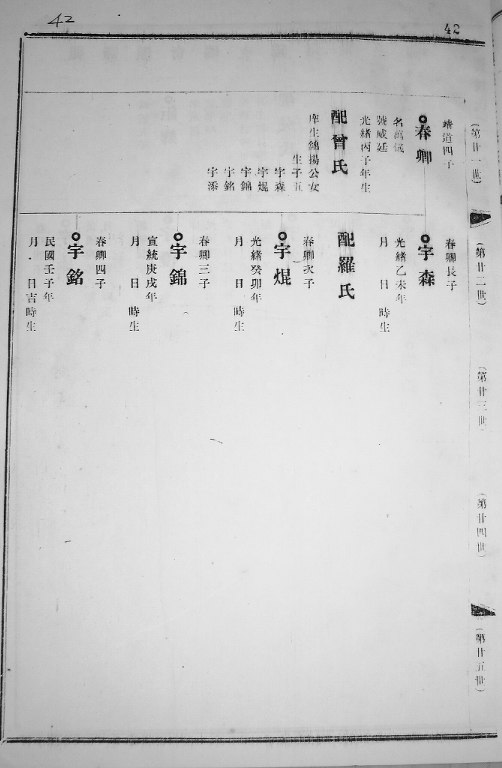 42
42
(第廿一世)
(第廿二世)
(第廿三世)
(第廿四世)
(第廿五世)
靖道四子
春卿
號咸廷
光緒丙子年生
配曾氏
庠生錦揚公女
生子五
宇森
宇焜
宇錦
宇銘
宇添
春卿長子
宇森
光緒乙未年
月 日 時生
配羅氏
春卿次子
宇焜
光緒癸卯年
月 日 時生
春卿三子
宇錦
宣統庚戌年
月 日 時生
春卿四子
宇銘
民國壬子年
月 日吉時生